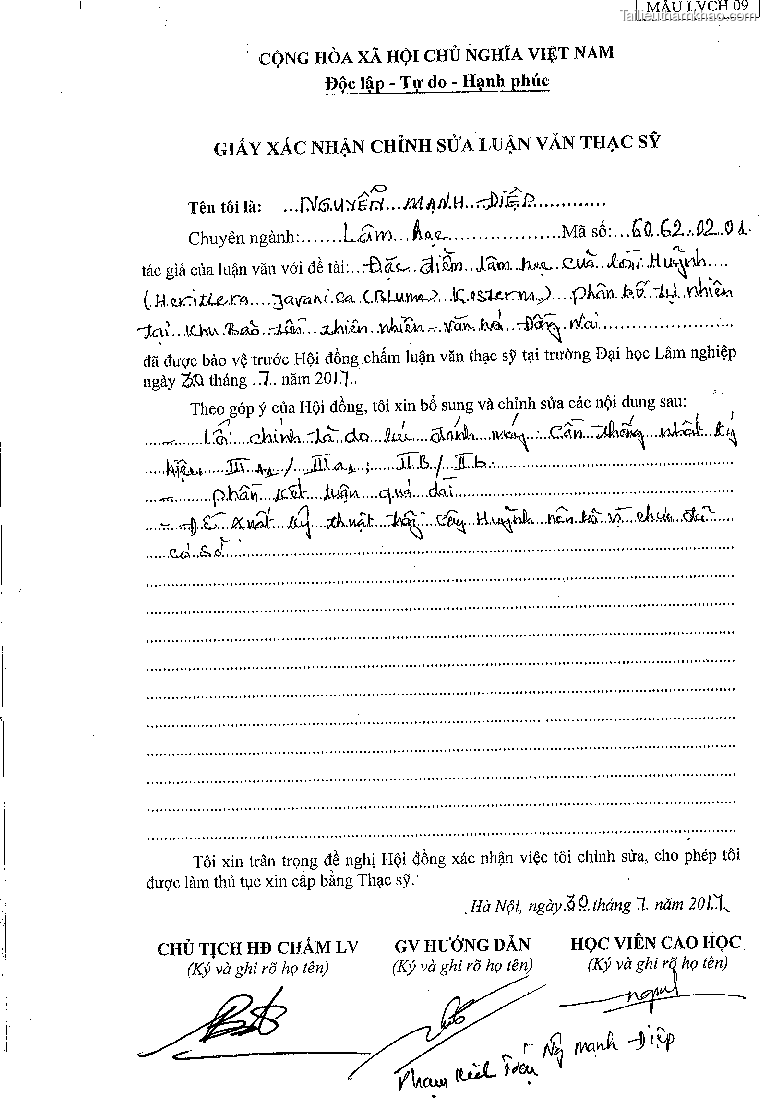 MẪU LVCH 09
Tailieuthamkhao.com
CỘNG HÒA XÃ HỘI CHỦ NGHĨA VIỆT NAM
Độc lập - Tự do - Hạnh phúc
GIẤY XÁC NHẬN CHỈNH SỬA LUẬN VĂN THẠC SỸ
Tên tôi là: NGUYỄN MẠNH ĐIỆP
Chuyên ngành: Lâm học Mã số: 60.62.02.01
tác giả của luận văn với đề tài: Đặc điểm lâm học của loài Huỳnh
(Heritiera javanica (Blume) Kosterm) phân bố tự nhiên
tại Khu Bảo tồn thiên nhiên - Văn hoá Đồng Nai
đã được bảo vệ trước Hội đồng chấm luận văn thạc sỹ tại trường Đại học Lâm nghiệp
ngày 30 tháng 7 năm 2017.
Theo góp ý của Hội đồng, tôi xin bổ sung và chỉnh sửa các nội dung sau:
- Lỗi chính tả do lúc đánh máy: Cần thống nhất ký
hiệu IIIA1 / IIIa1; IIB / IIb.
- phần kết luận quá dài
- Đề xuất kỹ thuật cây Huỳnh nên bỏ vì chưa đủ
cơ sở
Tôi xin trân trọng đề nghị Hội đồng xác nhận việc tôi chỉnh sửa, cho phép tôi
được làm thủ tục xin cấp bằng Thạc sỹ.
Hà Nội, ngày 30 tháng 7 năm 2017
CHỦ TỊCH HĐ CHẤM LV GV HƯỚNG DẪN HỌC VIÊN CAO HỌC
(Ký và ghi rõ họ tên) (Ký và ghi rõ họ tên) (Ký và ghi rõ họ tên)
Ng Mạnh Điệp
Phạm